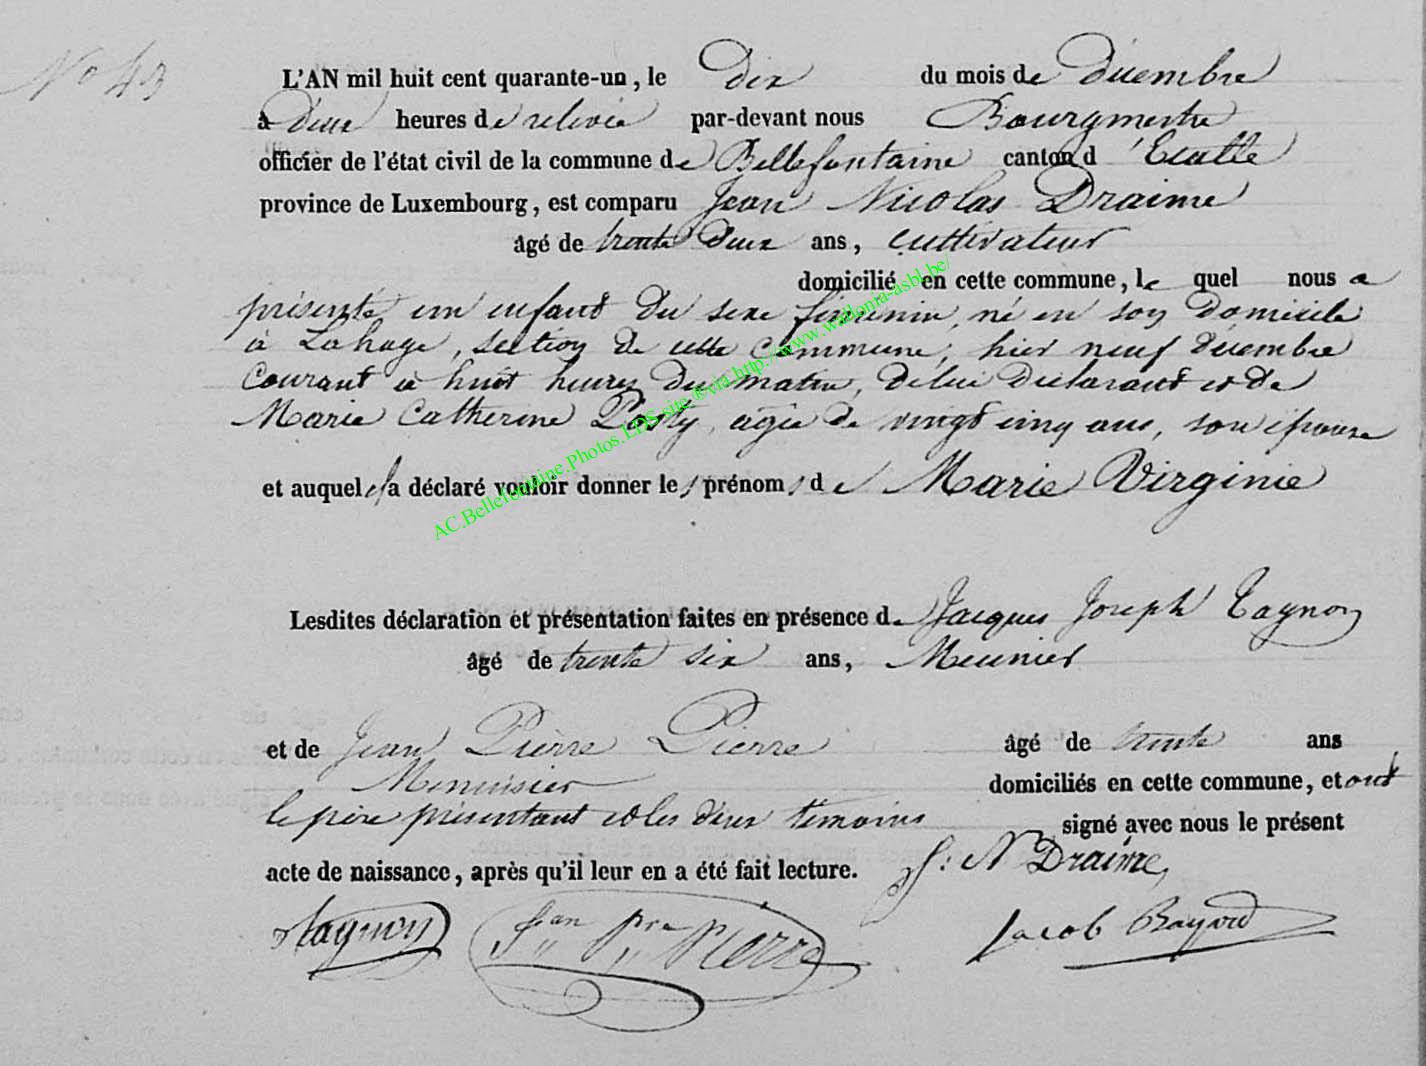 No 43
L'AN mil huit cent quarante-un, le dix du mois de décembre
à deux heures de relevée par-devant nous Bourgmestre
officier de l'état civil de la commune de Bellefontaine canton d'Etalle
province de Luxembourg, est comparu Jean Nicolas Draime
âgé de trente deux ans, cultivateur
domicilié en cette commune, le quel nous a
présenté un enfant du sexe féminin, né en son domicile
à Lahage, section de cette commune, hier neuf décembre
courant à huit heures du matin, de lui déclarant et de
Marie Catherine Pasty, agée de vingt cinq ans, son épouse
et auquel il a déclaré vouloir donner les prénoms de Marie Virginie
Lesdites déclaration et présentation faites en présence de Jacques Joseph Tagnon
âgé de trente six ans, Meunier
et de Jean Pierre Pierre âgé de trente ans
Menuisier domiciliés en cette commune, et ont
le père présentant et les deux témoins signé avec nous le présent
acte de naissance, après qu'il leur en a été fait lecture. J: N Draime,
Tagnon Jean Pre Pierre Jacob Bayard
AC.Bellefontaine.Photos.LDS.site ®via:http://www.wallonia-asbl.be/